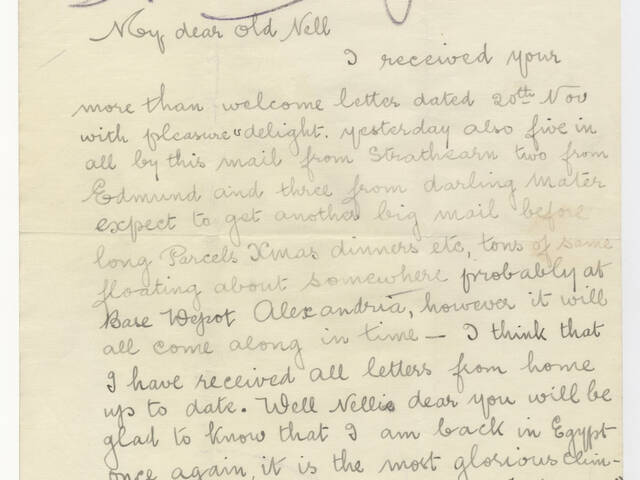 My dear old Nell
I received your
more than welcome letter dated 20th Nov
with pleasure "delight. yesterday also five in
all by this mail from Strathearn two from
Edmund and three from darling Mater
expect to get another big mail before
long Parcels Xmas dinners etc, tons of same
floating about somewhere probably at
Base Depot Alexandria, however it will
all come along in time — I think that
I have received all letters from home
up to date. Well Nellie dear you will be
glad to know that I am back in Egypt
once again, it is the most glorious clim-